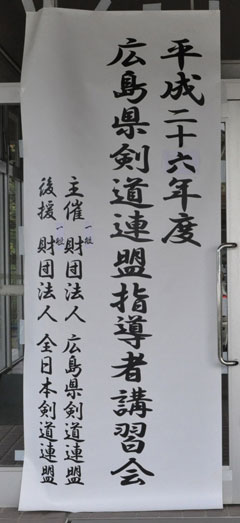 平成二十六年度
広島県剣道連盟指導者講習会
主催 一般財団法人 広島県剣道連盟
後援 一般財団法人 全日本剣道連盟